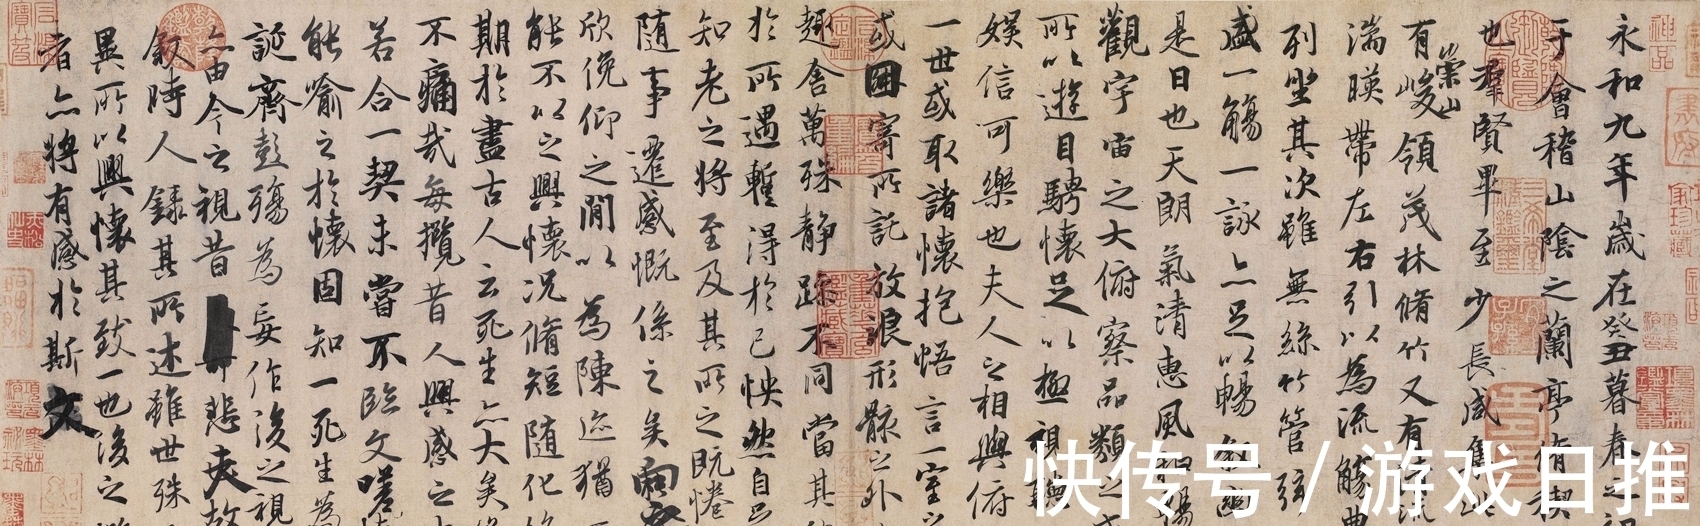 永和九年歲在癸丑暮春之初
于會稽山陰之蘭亭脩稧
也群賢畢至少長咸集
有崇山峻領茂林脩竹又有
湍暎帶左右引以為流觴曲
列坐其次雖無絲竹管弦
盛一觴一詠亦足以暢敘幽
是日也天朗氣清惠風和暢
觀宇宙之大俯察品類之盛
所以遊目騁懷足以極視聽
娛信可樂也夫人之相與俯
一世或取諸懷抱悟言一室之
或因寄所託放浪形骸之外
趣舍萬殊静躁不同當其
於所遇暫得於己怏然自足
知老之將至及其所之既惓
隨事遷感慨係之矣向
欣俛仰之閒以為陳迹猶
能不以之興懷況脩短隨化
期於盡古人云死生亦大矣
不痛哉每攬昔人興感之
若合一契未嘗不臨文嗟
能喻之於懷固知一死生為
誕齊彭殤為妄作後之視
亦由今之視昔悲夫故
敘時人錄其所述雖世殊
異所以興懷其致一也後之
者亦將有感於斯文
快传号/游戏日推